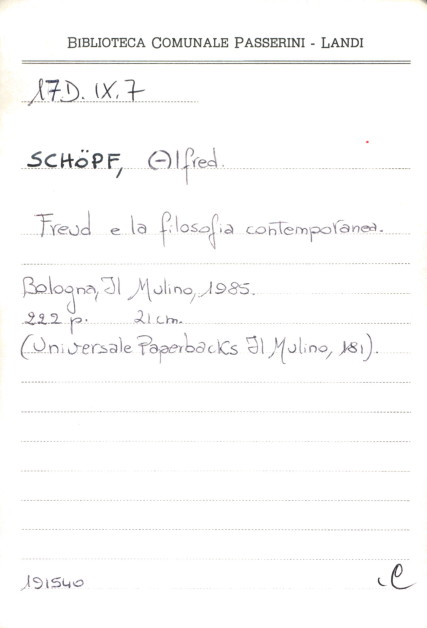 BIBLIOTECA COMUNALE PASSERINI - LANDI
17D. IX. 7
SCHÖPF, Alfred.
Freud e la filosofia contemporanea.
Bologna, Il Mulino, 1985.
222 p. 21 cm.
(Universale Paperbacks Il Mulino, 181).
191540